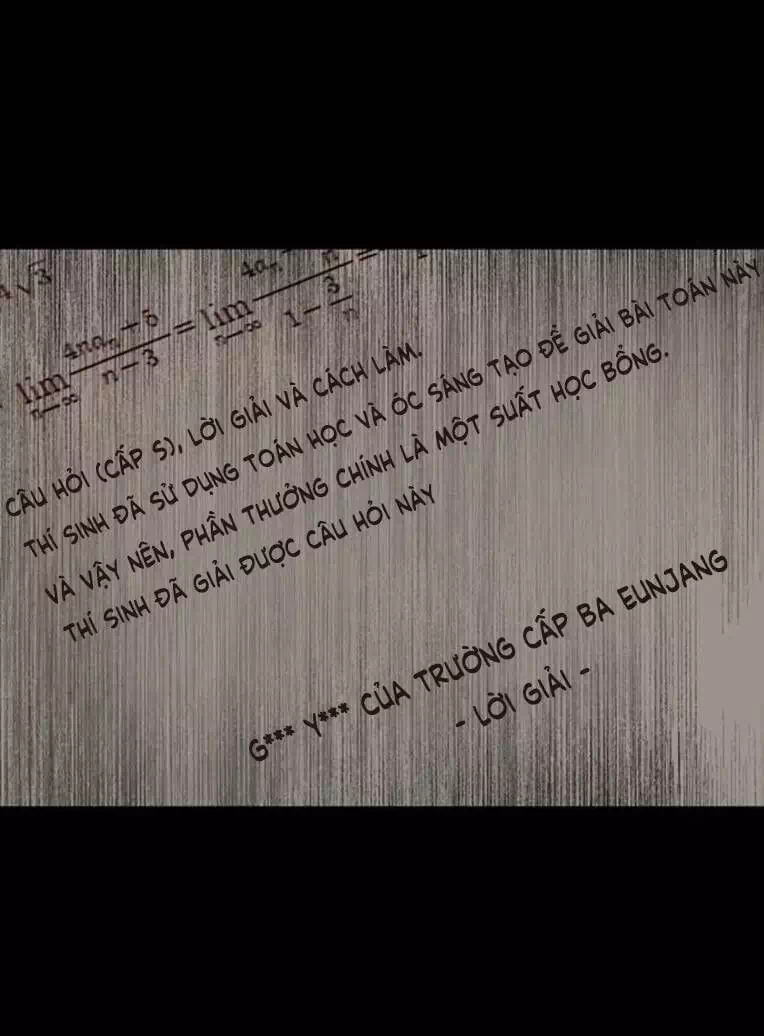 4√3
lim n→∞ 4naₙ − 5 / n − 3 = lim n→∞ 4aₙ − / n / 1 − 3/n =
CÂU HỎI (CẤP S), LỜI GIẢI VÀ CÁCH LÀM.
THÍ SINH ĐÃ SỬ DỤNG TOÁN HỌC VÀ ÓC SÁNG TẠO ĐỂ GIẢI BÀI TOÁN NÀY
VÀ VẬY NÊN, PHẦN THƯỞNG CHÍNH LÀ MỘT SUẤT HỌC BỔNG.
THÍ SINH ĐÃ GIẢI ĐƯỢC CÂU HỎI NÀY
G*** Y*** CỦA TRƯỜNG CẤP BA EUNJANG
- LỜI GIẢI -